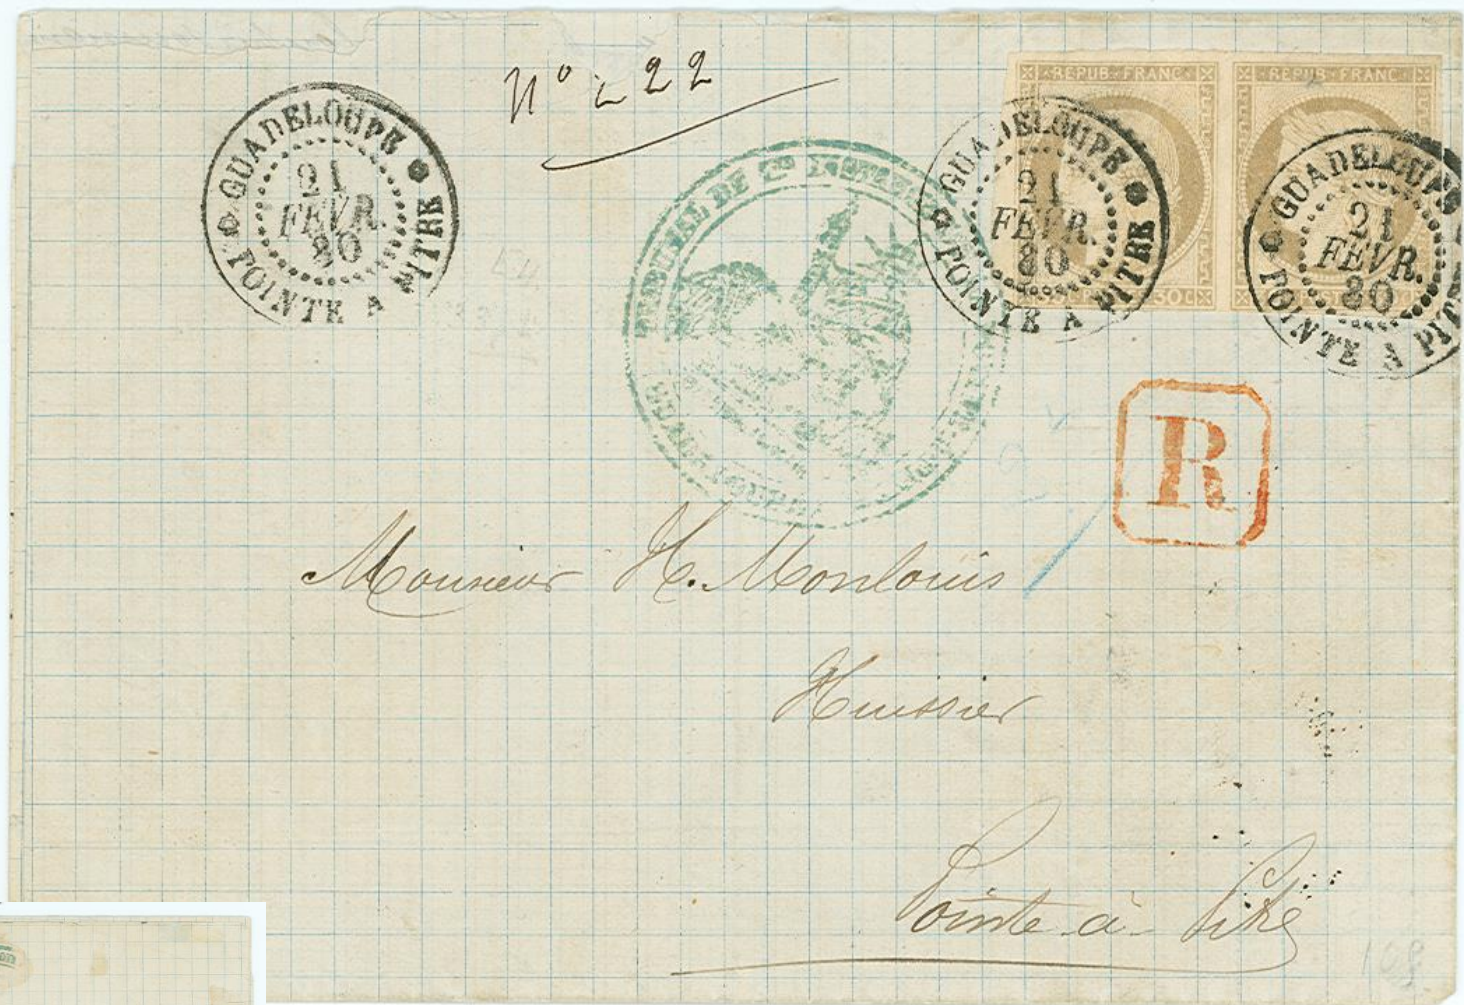 GUADELOUPE
21
FEVR.
80
POINTE A PITRE
N° 222
TRIBUNAL DE
REPUB. FRANC.
REPUB. FRANC.
30 C
GUADELOUPE
21
FEVR.
80
POINTE A PITRE
GUADELOUPE
21
FEVR.
80
POINTE A PITRE
R
Monsieur H. Monlouis
Huissier
Pointe-à-Pitre